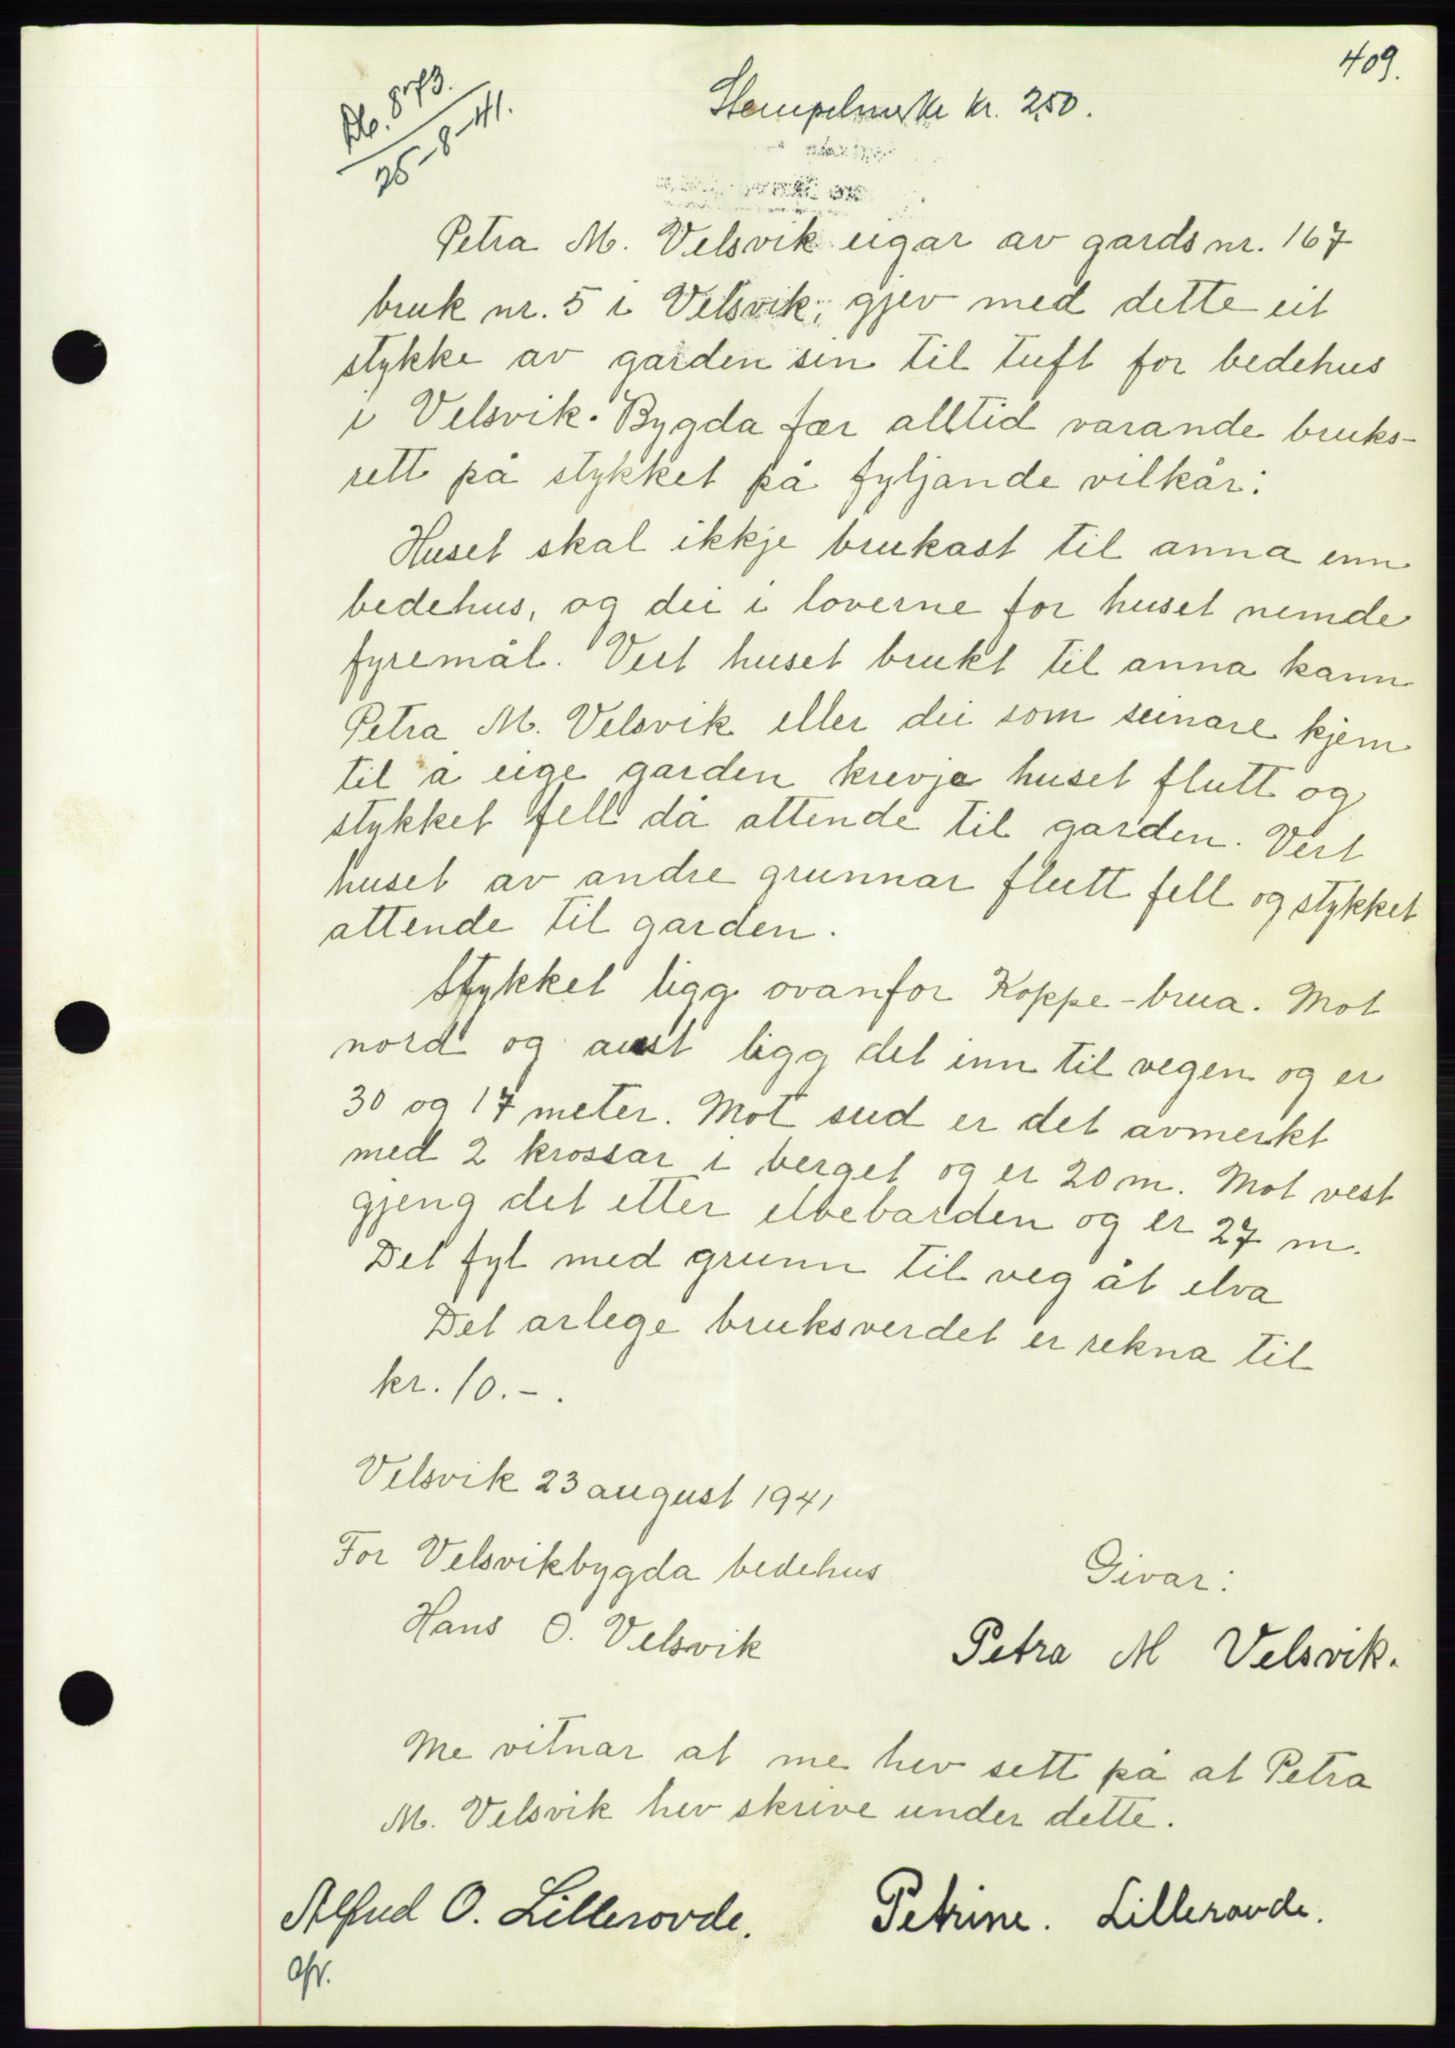 409.
Db. 873.
25-8-41.
Stempelmerke kr. 2,50.
Petra M. Velsvik eigar av gards nr. 167
bruk nr. 5 i Velsvik, gjev med dette eit
stykke av garden sin til tuft for bedehus
i Velsvik. Bygda fær alltid varande bruks-
rett på stykket på fyljande vilkår:
Huset skal ikkje brukast til anna enn
bedehus, og dei i loverne for huset nemde
fyremål. Vert huset brukt til anna kann
Petra M. Velsvik eller dei som seinare kjem
til å eige garden krevje huset flutt og
stykket fell då attende til garden. Vert
huset av andre grunnar flutt fell og stykket
attende til garden.
Stykket ligg ovanfor Koppe-brua. Mot
nord og aust ligg det inn til vegen og er
30 og 17 meter. Mot sud er det avmerkt
med 2 krossar i berget og er 20 m. Mot vest
gjeng det etter elvebarden og er 27 m.
Det fyl med grunn til veg åt elva
Det arlege bruksverdet er rekna til
kr. 10.-.
Velsvik 23 august 1941
For Velsvikbygda bedehus
Givar:
Hans O. Velsvik
Petra M Velsvik.
Me vitnar at me hev sett på at Petra
M. Velsvik hev skrive under dette.
Alfred O. Lillerovde.
Petrine. Lillerovde.